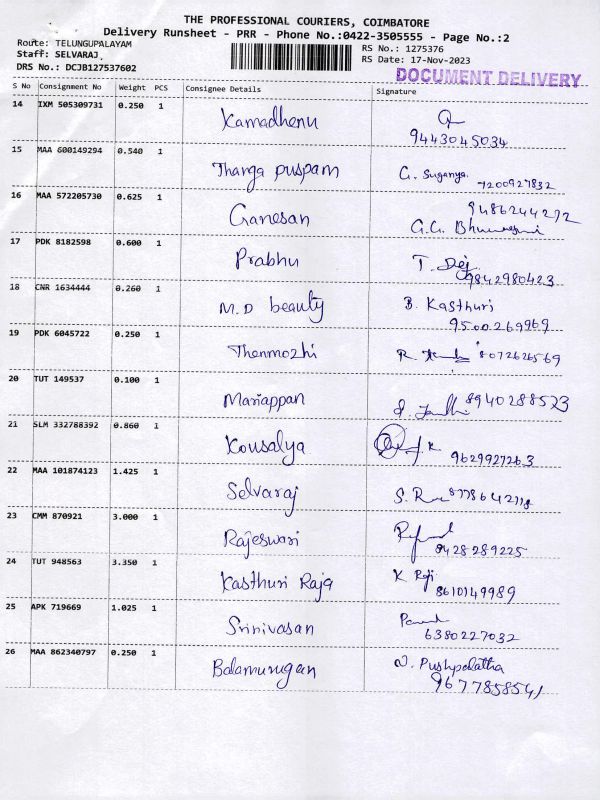 THE PROFESSIONAL COURIERS, COIMBATORE
Delivery Runsheet - PRR - Phone No.:0422-3505555 - Page No.:2
Route: TELUNGUPALAYAM
Staff: SELVARAJ.
DRS No.: DCJB127537602
RS No.: 1275376
RS Date: 17-Nov-2023
DOCUMENT DELIVERY
S No Consignment No Weight PCS Consignee Details Signature
14 IXM 505309731 0.250 1 Kamadhenu
9443045034
15 MAA 600149294 0.540 1 Thanga puspam G. Suganya.
7200927832
16 MAA 572205730 0.625 1 Ganesan 9486244272
17 PDK 8182598 0.600 1 Prabhu
9842980423
18 CNR 1634444 0.260 1 M.D beauty B. Kasthuri
9500269969
19 PDK 6045722 0.250 1 Thenmozhi
20 TUT 149537 0.100 1 Mariappan 8940288523
21 SLM 332788392 0.860 1 Kousalya
9629927263
22 MAA 101874123 1.425 1 Selvaraj
23 CMM 870921 3.000 1 Rajeswari
9428289225
24 TUT 948563 3.350 1 Kasthuri Raja K Raji
8610149989
25 APK 719669 1.025 1 Srinivasan
6380227032
26 MAA 862340797 0.250 1 Balamurugan N. Pushpalatha
9677858541